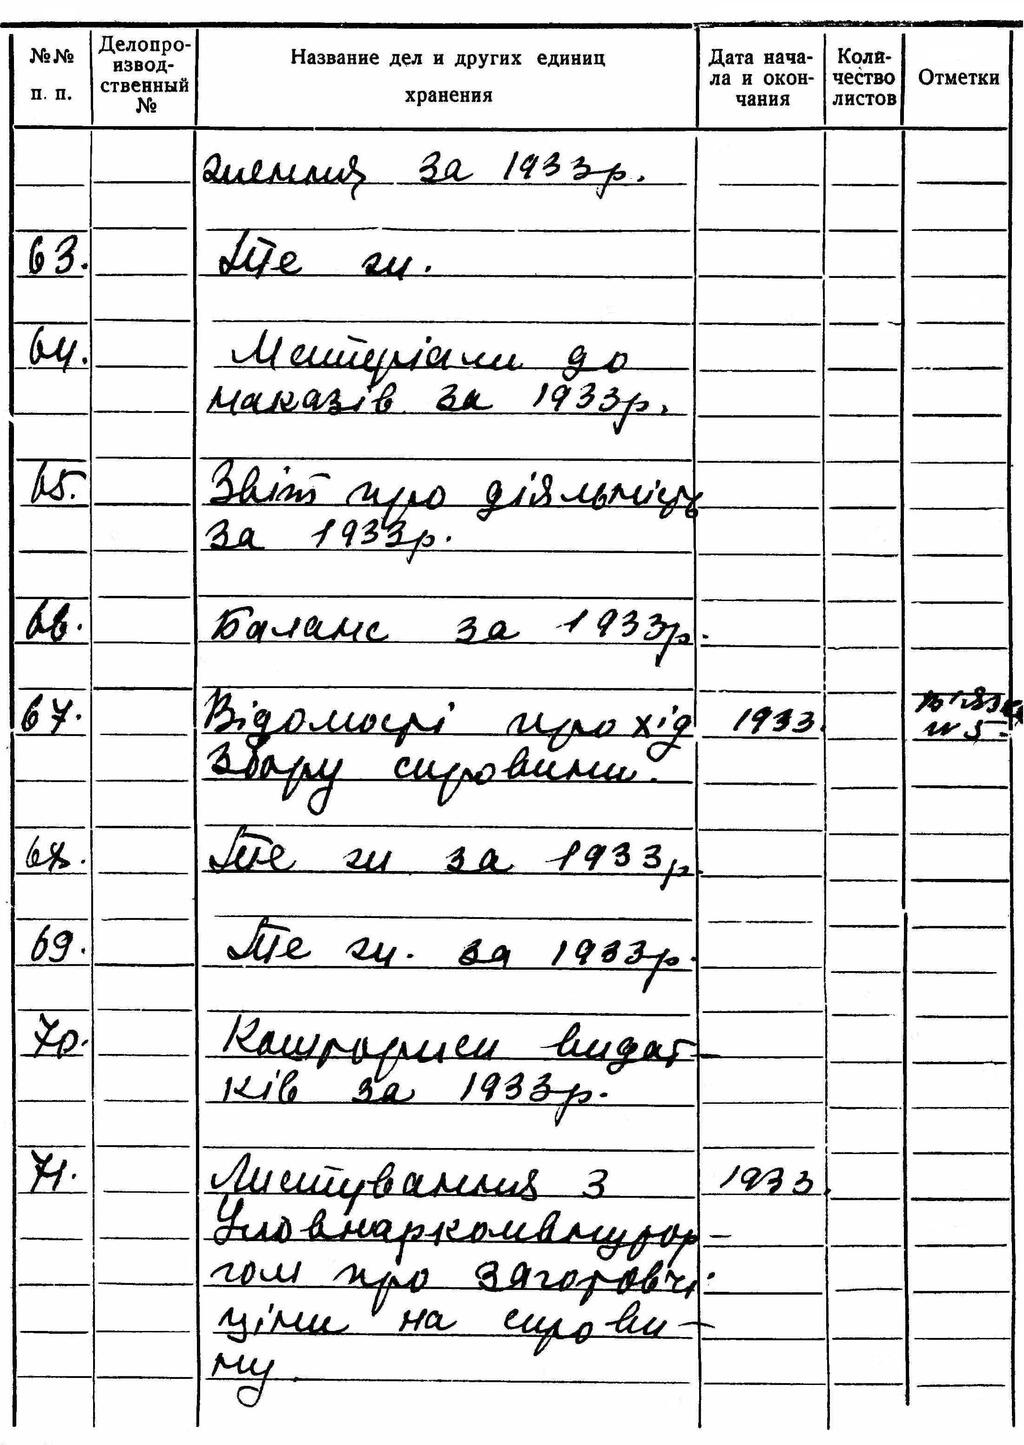 №№ п. п.
Делопроизводственный №
Название дел и других единиц хранения
Дата начала и окончания
Количество листов
Отметки
за 1933р.
63. Те ж.
64. Матеріали до
наказів за 1933р.
65. Звіт про діяльність
за 1933р.
66. Баланс за 1933р.
67. Відомості про хід 1933. № 5.
збору сировини.
68. Те ж за 1933р
69. Те ж. за 1933р.
70. Кошториси видат-
ків за 1933р.
71. Листування з 1933.
гом про заготовчі
ціни на сирови-
ну.